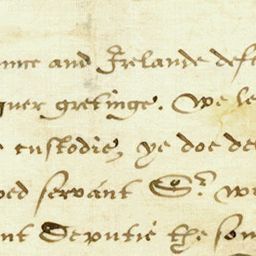 unce and Irelande defe
quer gretinge. We le
e custodie, ye doe del
oved servant Sr. w
nt Deputie the som